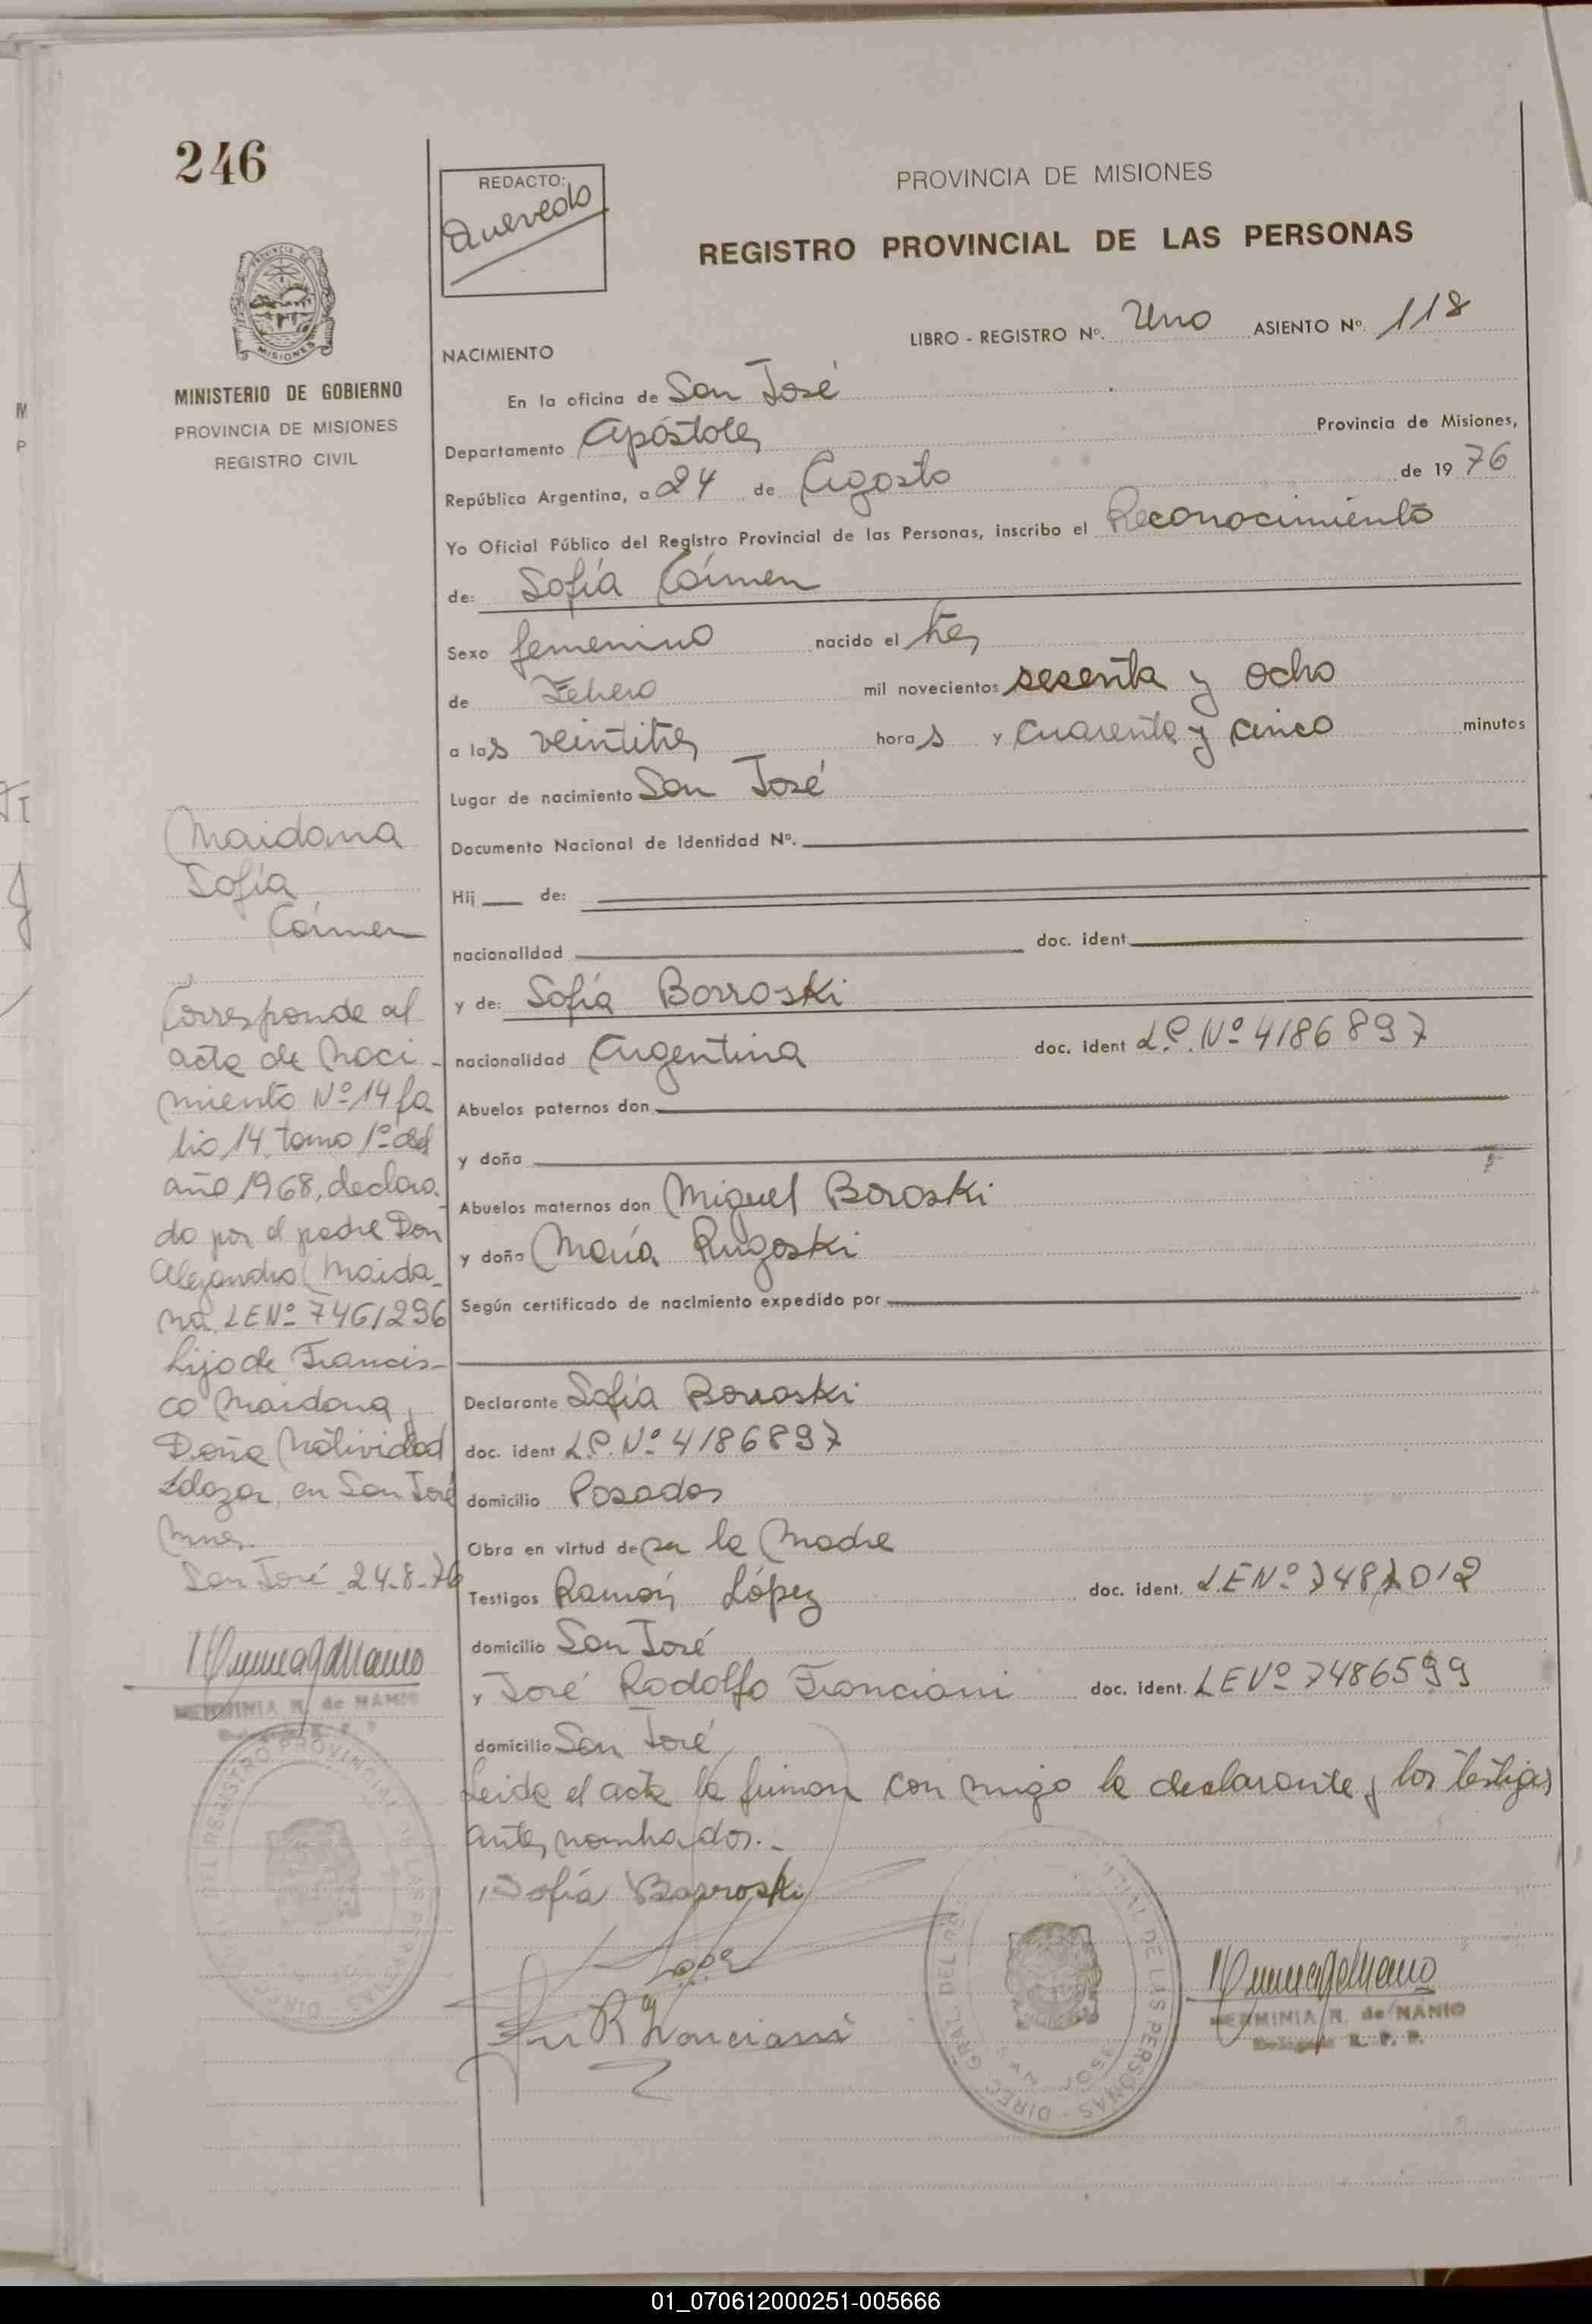 246
REDACTO:
Quevedo
PROVINCIA DE MISIONES
REGISTRO PROVINCIAL DE LAS PERSONAS
LIBRO - REGISTRO Nº. Uno ASIENTO Nº. 118
MINISTERIO DE GOBIERNO
PROVINCIA DE MISIONES
REGISTRO CIVIL
NACIMIENTO
En la oficina de San José
Departamento Apóstoles Provincia de Misiones,
República Argentina, a 24 de Agosto de 19 76
Yo Oficial Público del Registro Provincial de las Personas, inscribo el Reconocimiento
de: Sofía Cármen
Sexo femenino nacido el tres
de Febrero mil novecientos sesenta y ocho
a las veintitres horas y cuarenta y cinco minutos
Lugar de nacimiento San José
Documento Nacional de Identidad Nº.
Hij de:
nacionalidad doc. ident.
y de: Sofía Borroski
nacionalidad Argentina doc. ident L.C. Nº 4186897
Abuelos paternos don
y doña
Abuelos maternos don Miguel Boroski
y doña María Rugoski
Según certificado de nacimiento expedido por
Declarante Sofía Borroski
doc. ident L.C. Nº 4186897
domicilio Posadas
Obra en virtud de ser la Madre
Testigos Ramón López doc. ident. L.E Nº 7487012
domicilio San José
y José Rodolfo Franciani doc. ident. LE Nº 7486599
domicilio San José
Leída el acta la firman con migo la declarante y los testigos
antes nombrados.-
Sofía Barroski
Lopez
José R Franciani
HERMINIA R. de NANIO
Delegada R. P. P.
Maidana
Sofía
Cármen
Corresponde al
acta de Naci-
miento Nº 14 fo
lio 14, tomo 1º del
año 1968, declara-
do por el padre Don
Alejandro Maida-
na LE Nº 7461296
hijo de Francis-
co Maidana y
Doña Natividad
en San José
Mnes.
San José 24-8-76
HERMINIA R. de NANIO
Delegada R. P. P.
DEL REGISTRO PROVINCIAL DE LAS PERSONAS - DIREC
DIREC GRAL DEL REG DE LAS PERSONAS
SAN JOSE
01_070612000251-005666